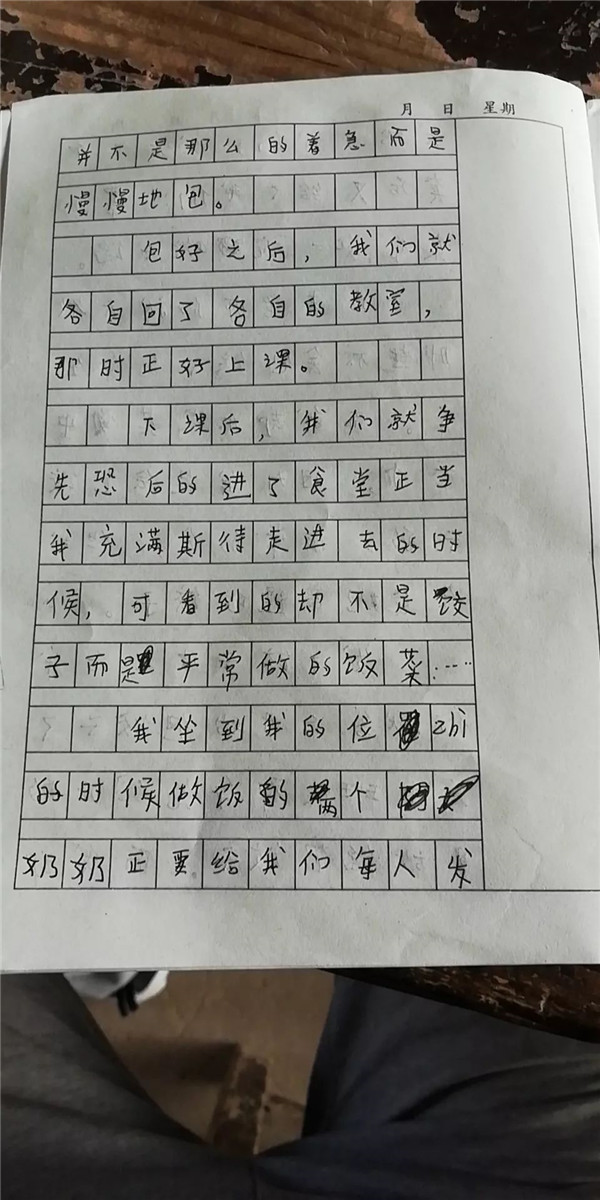 月 日 星期
并不是那么的着急而是
慢慢地包。
包好之后，我们就
各自回了各自的教室，
那时正好上课。
下课后，我们就争
先恐后的进了食堂正当
我充满斯待走进去的时
候，可看到的却不是饺
子而是平常做的饭菜……
我坐到我的位zhi
的时候做饭的两个
奶奶正要给我们每人发